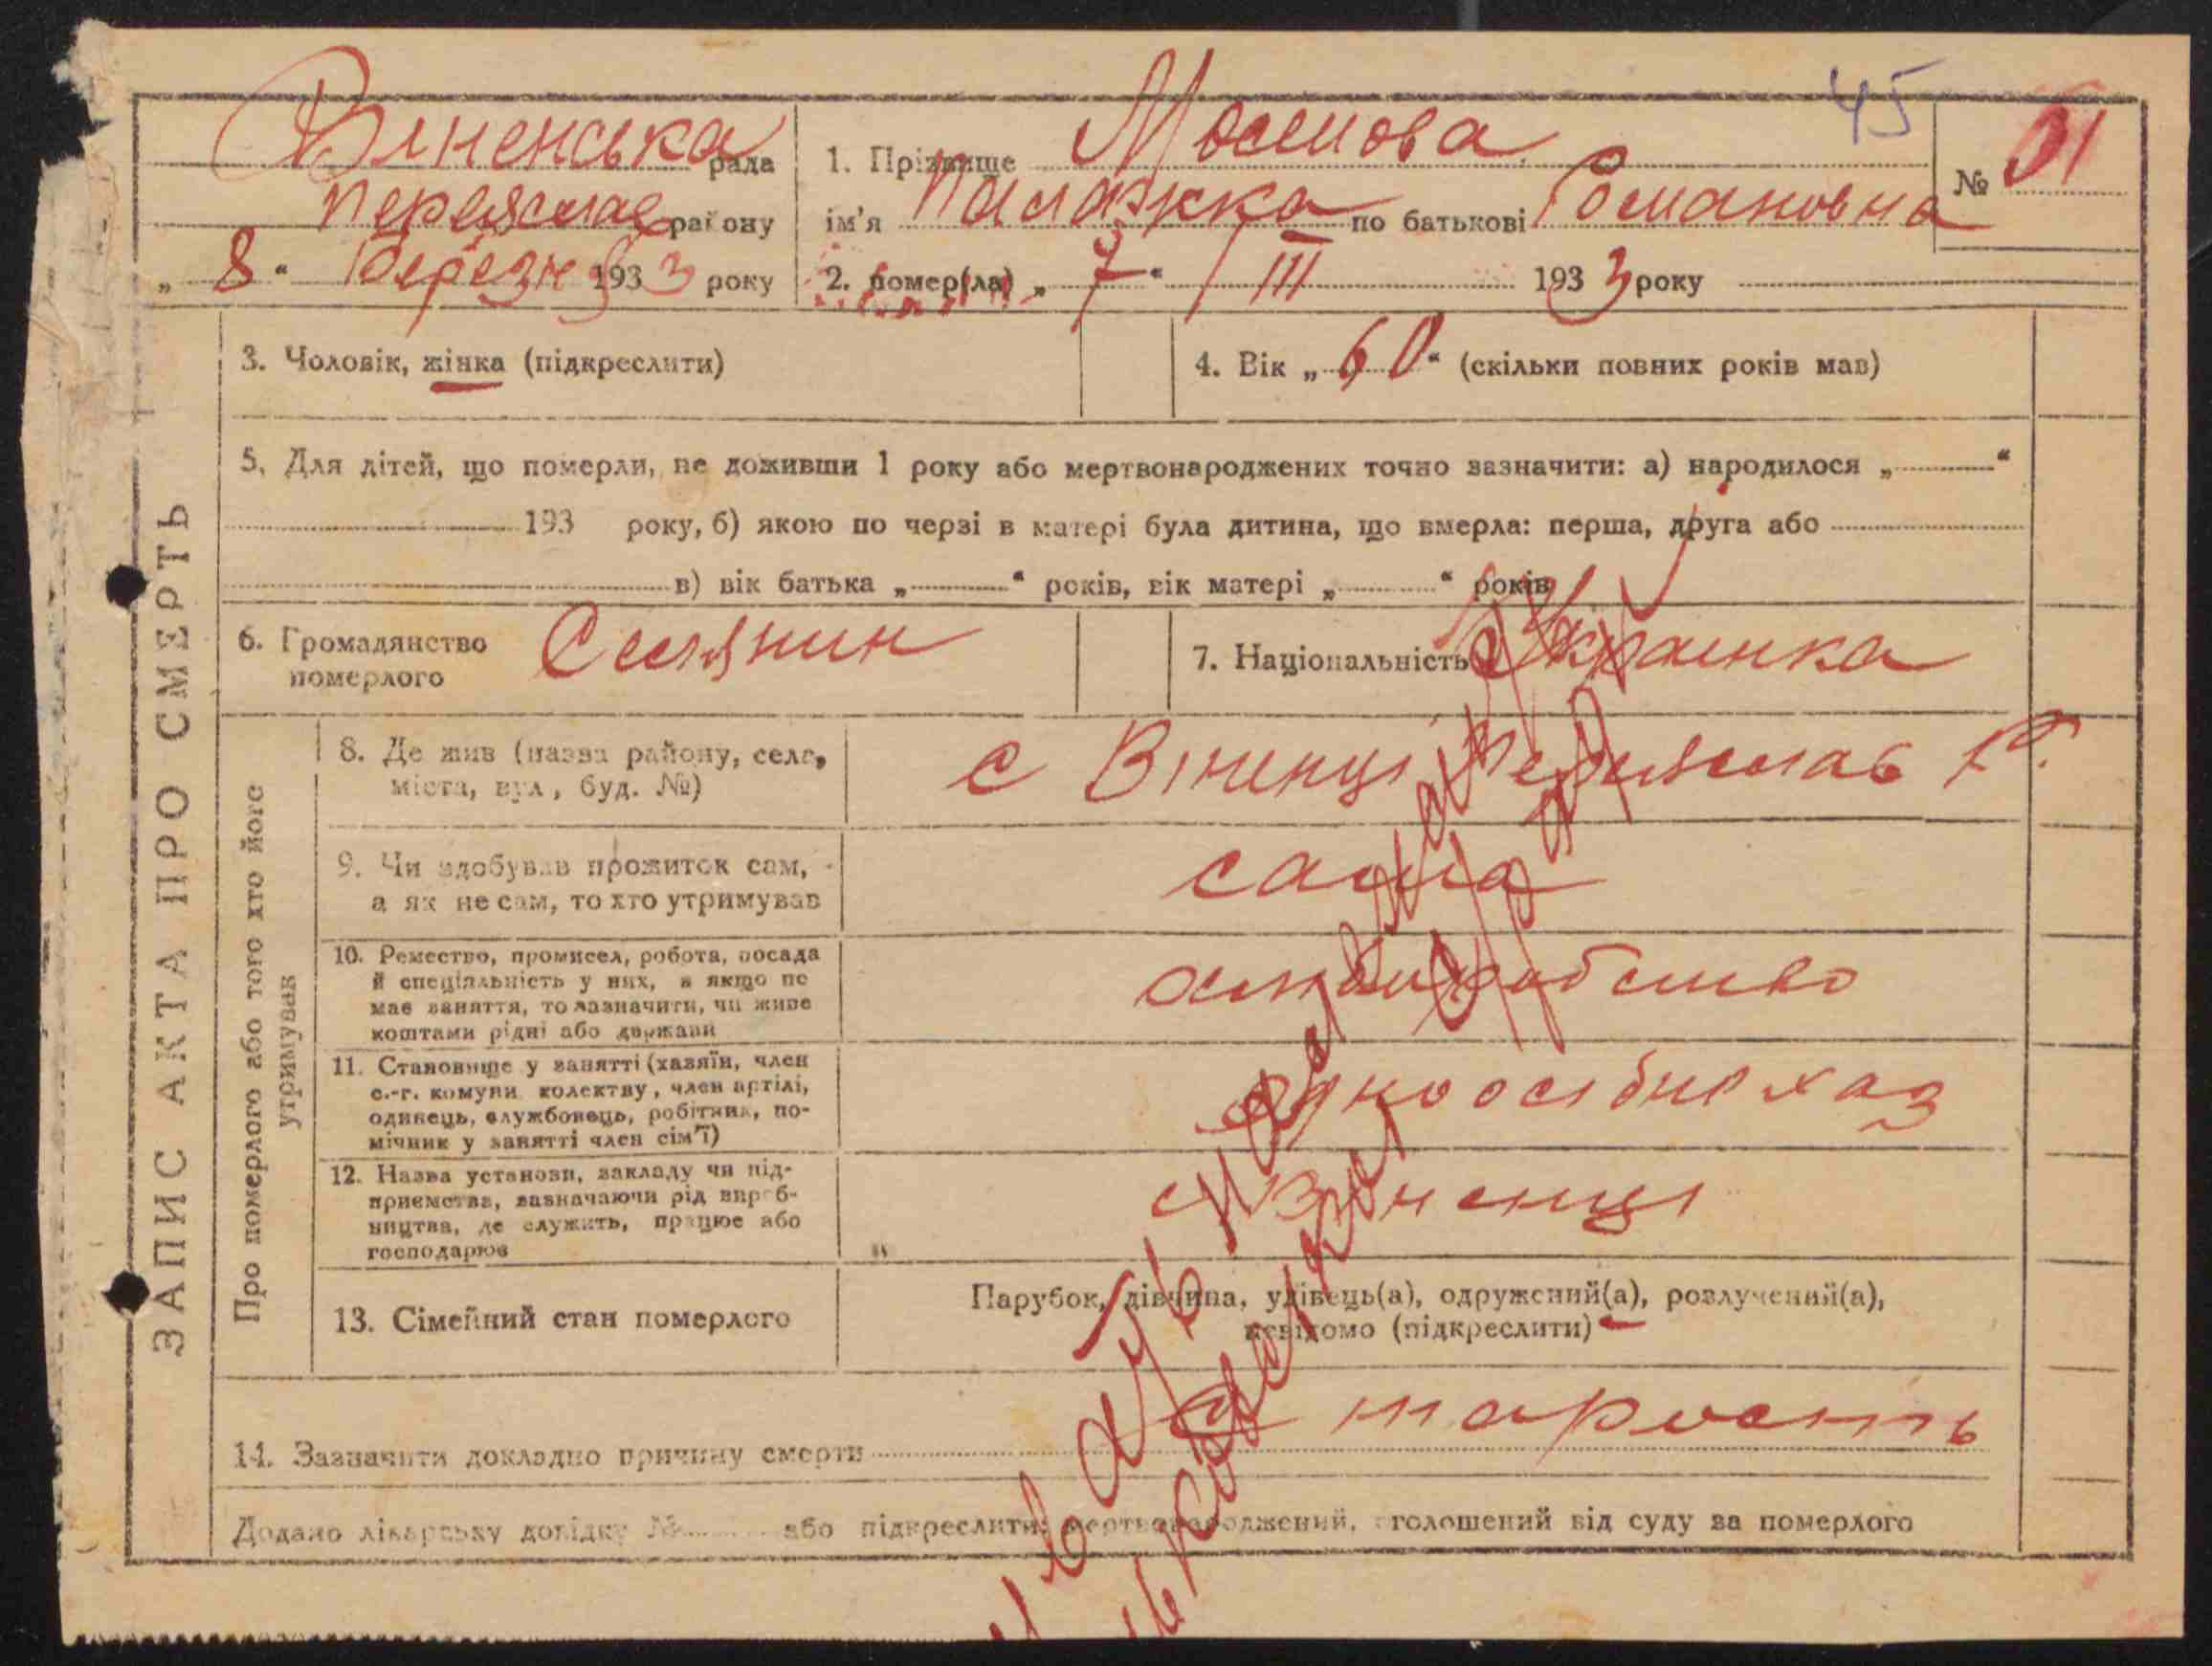 45
Віненська рада
Переяслав району
„ 8 “ березня 1933 року
1. Прізвище Мосшова
ім'я Палажка по батькові Романовна
№ 31
2. помер(ла) „ 7 “ III 1933 року
ЗАПИС АКТА ПРО СМЕРТЬ
3. Чоловік, жінка (підкреслити)
4. Вік „ 60 “ (скільки повних років мав)
5. Для дітей, що померли, не доживши 1 року або мертвонароджених точно зазначити: а) народилося „ “
193 року, б) якою по черзі в матері була дитина, що вмерла: перша, друга або
в) вік батька „ “ років, вік матері „ “ років
6. Громадянство померлого Селянин
7. Національність Украинка
Про померлого або того хто його утримував
8. Де жив (назва району, села, міста, вул, буд. №)
с Віненці Переяслав р.
9. Чи здобував прожиток сам, а як не сам, то хто утримував
сама
10. Ремество, промисел, робота, посада й спеціяльність у них, а якщо не має заняття, то зазначити, чи живе коштами рідні або держави
хліборобство
11. Становище у занятті (хазяїн, член с.-г. комуни колектву, член артілі, одинець, службовець, робітник, помічник у занятті член сім'ї)
одноосібне хаз
12. Назва установи, закладу чи підприємства, зазначаючи рід виробництва, де служить, працює або господарює
с Віненці
13. Сімейний стан померлого
Парубок, дівчина, удівець(а), одружений(а), розлучений(а),
невідомо (підкреслити)
14. Зазначити докладно причину смерти старость
Додано лікарську довідку № або підкреслити: мертвонароджений, оголошений від суду за померлого